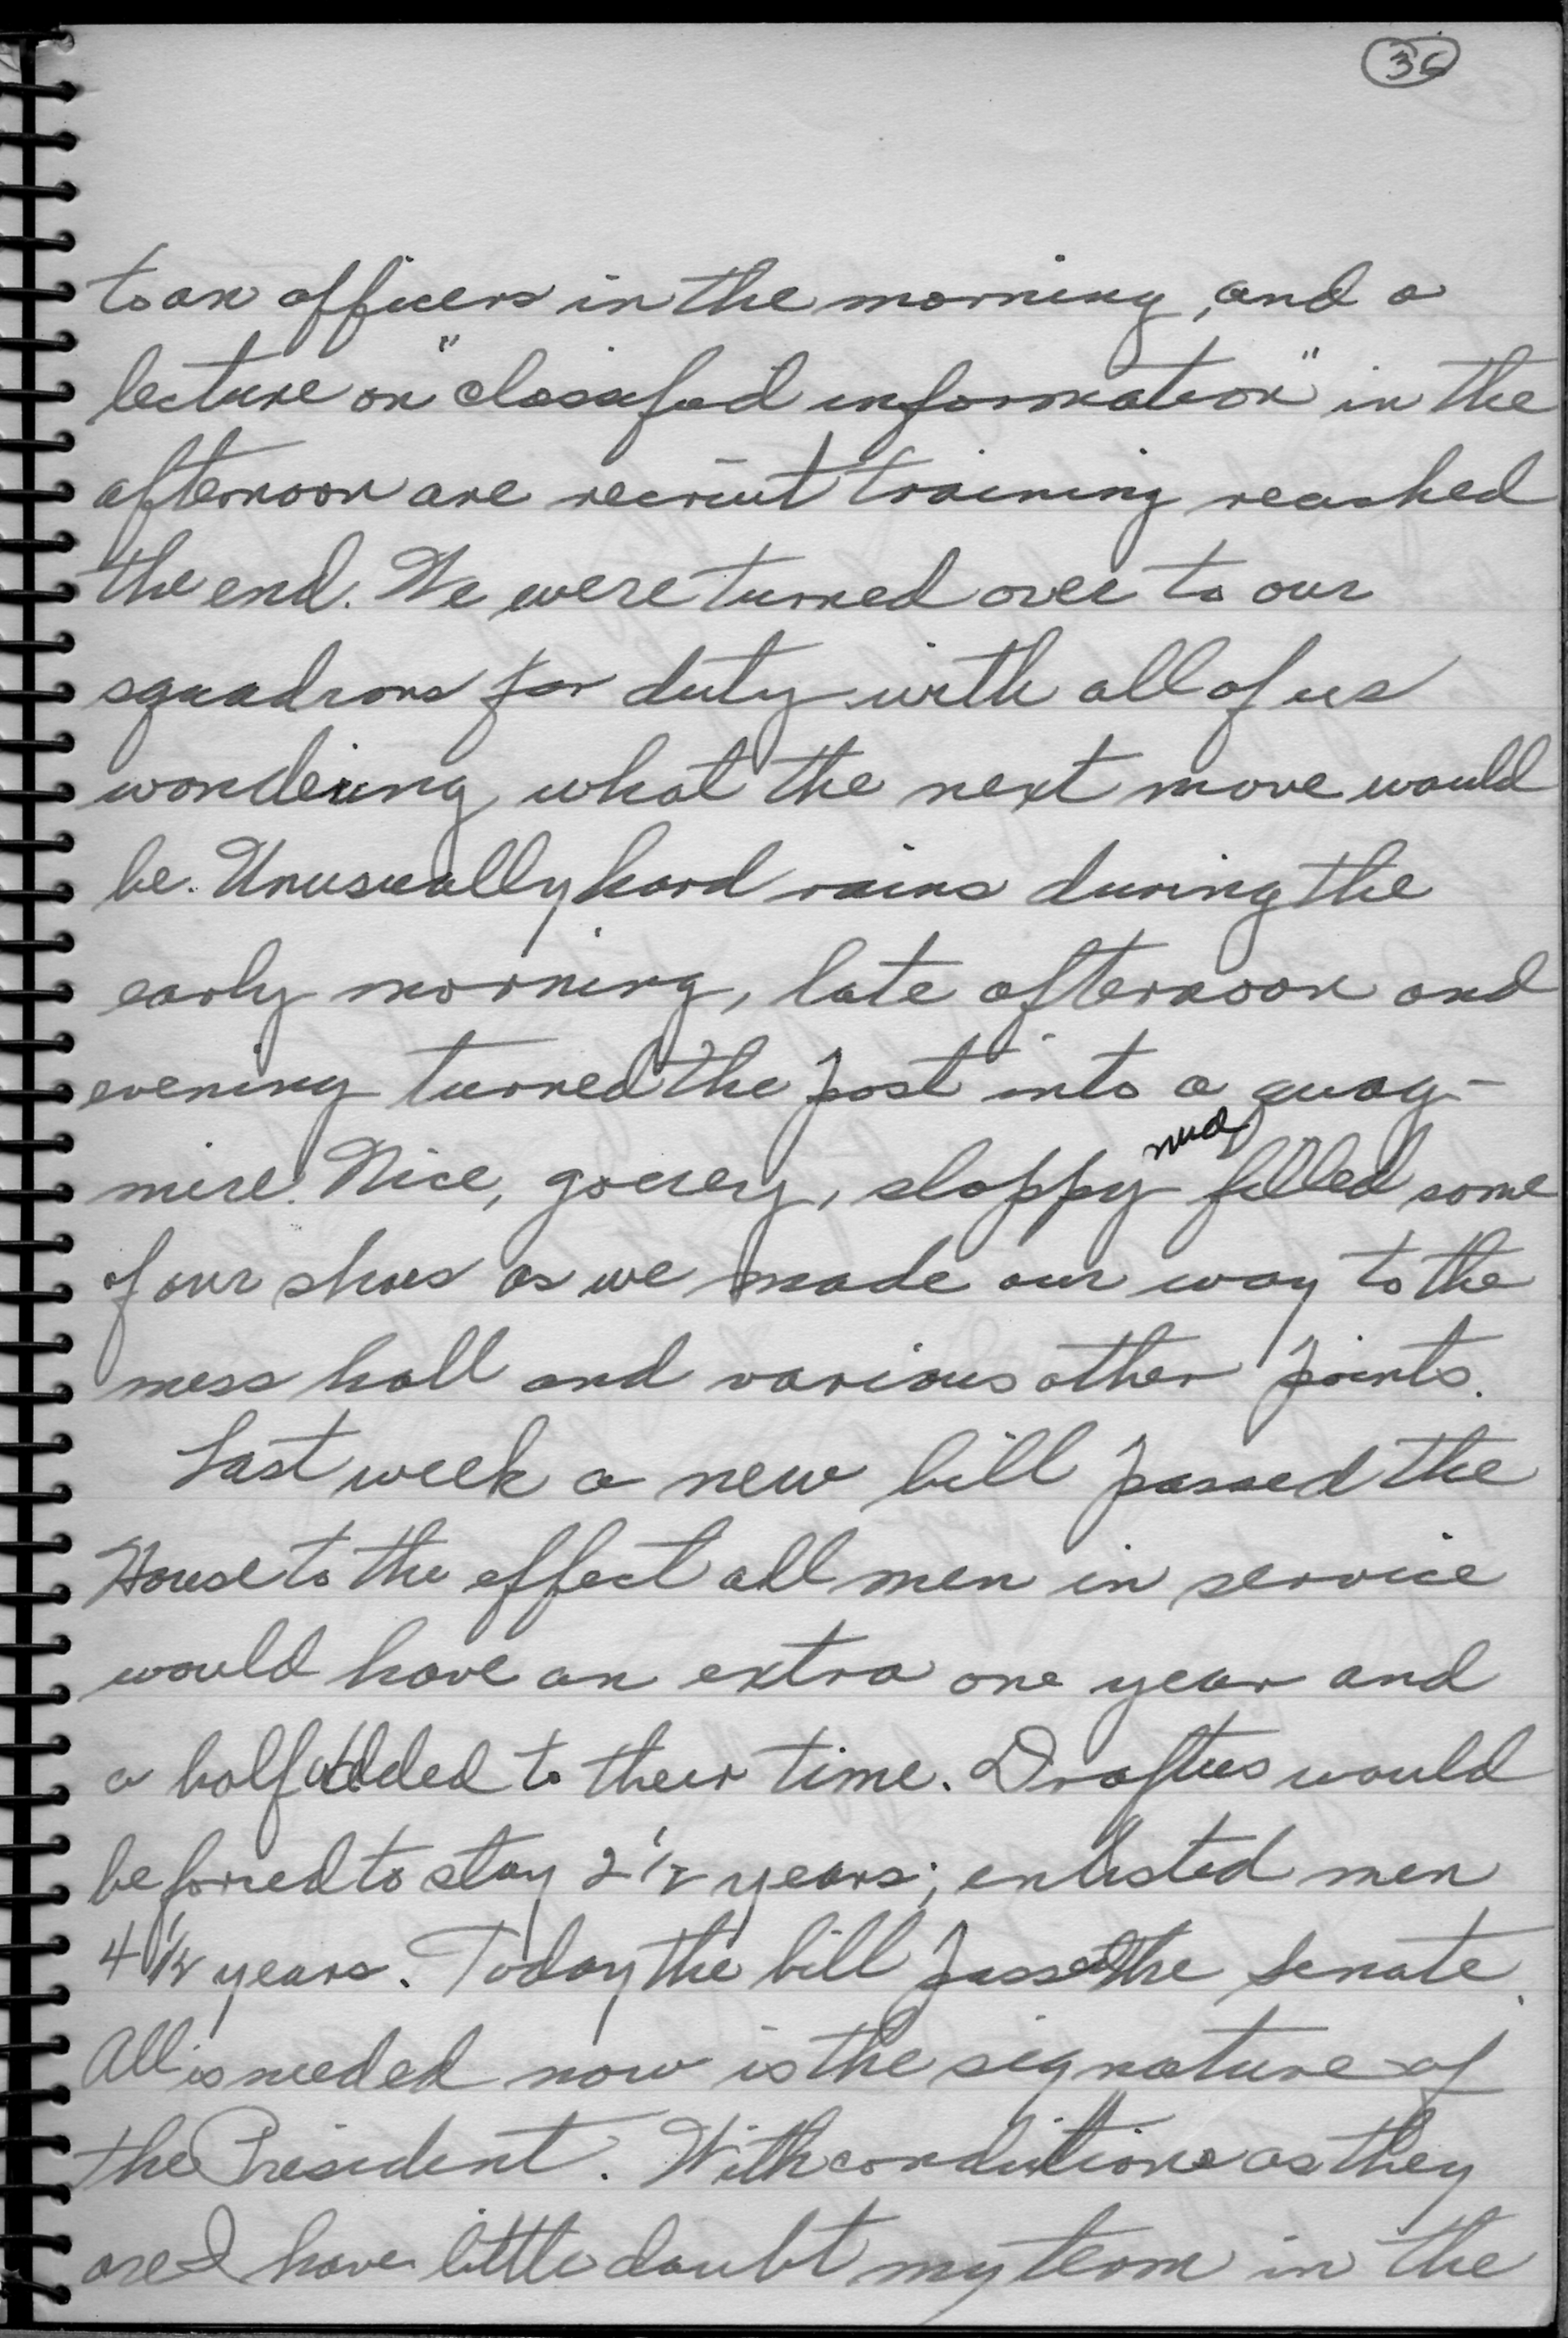 36
to an officers in the morning, and a
lecture on "classified information" in the
afternoon are recruit training reached
the end. We were turned over to our
squadrons for duty with all of us
wondering what the next move would
be. Unusually hard rains during the
early morning, late afternoon and
evening turned the post into a quag-
mire. Nice, gooey, sloppy mud filled some
of our shoes as we made our way to the
mess hall and various other points.
Last week a new bill passed the
House to the effect all men in service
would have an extra one year and
a half added to their time. Draftees would
be forced to stay 2 1/2 years; enlisted men
4 1/2 years. Today the bill passed the Senate.
All is needed now is the signature of
the President. With conditions as they
are I have little doubt my term in the